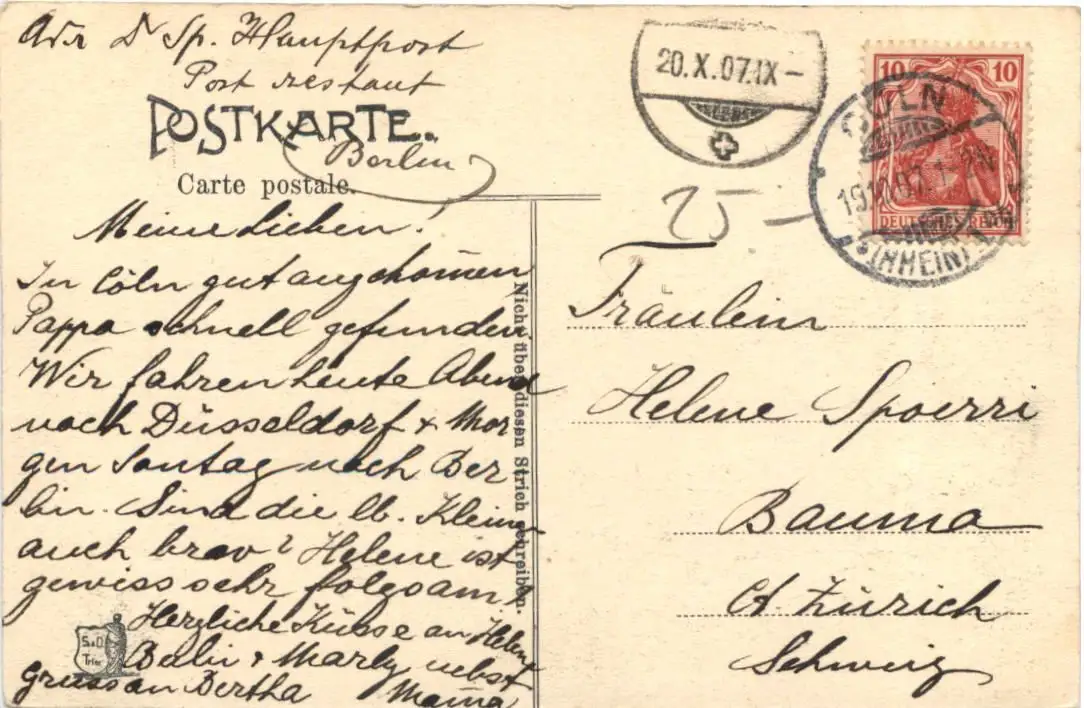 Adr D Sp. Hauptpost
Post restant
Berlin
POSTKARTE.
Carte postale.
Meine Lieben!
In Cöln gut angekomen
Pappa schnell gefunden.
Wir fahren heute Abend
nach Düsseldorf & Mor
gen Sontag nach Ber
lin. Sind die lb. Kleinen
auch brav? Helene ist
gewiss sehr folgsam?
Herzliche Küsse an Helene
& Marly nebst
gruss an Bertha Mama
S.&D.
Trier
Nicht über diesen Strich schreiben.
20.X.07.IX-
25-
10 10
DEUTSCHES REICH
CÖLN
19.10.07.
(RHEIN)
Fräulein
Helene Spoerri
Bauma
Ct. Zürich
Schweiz